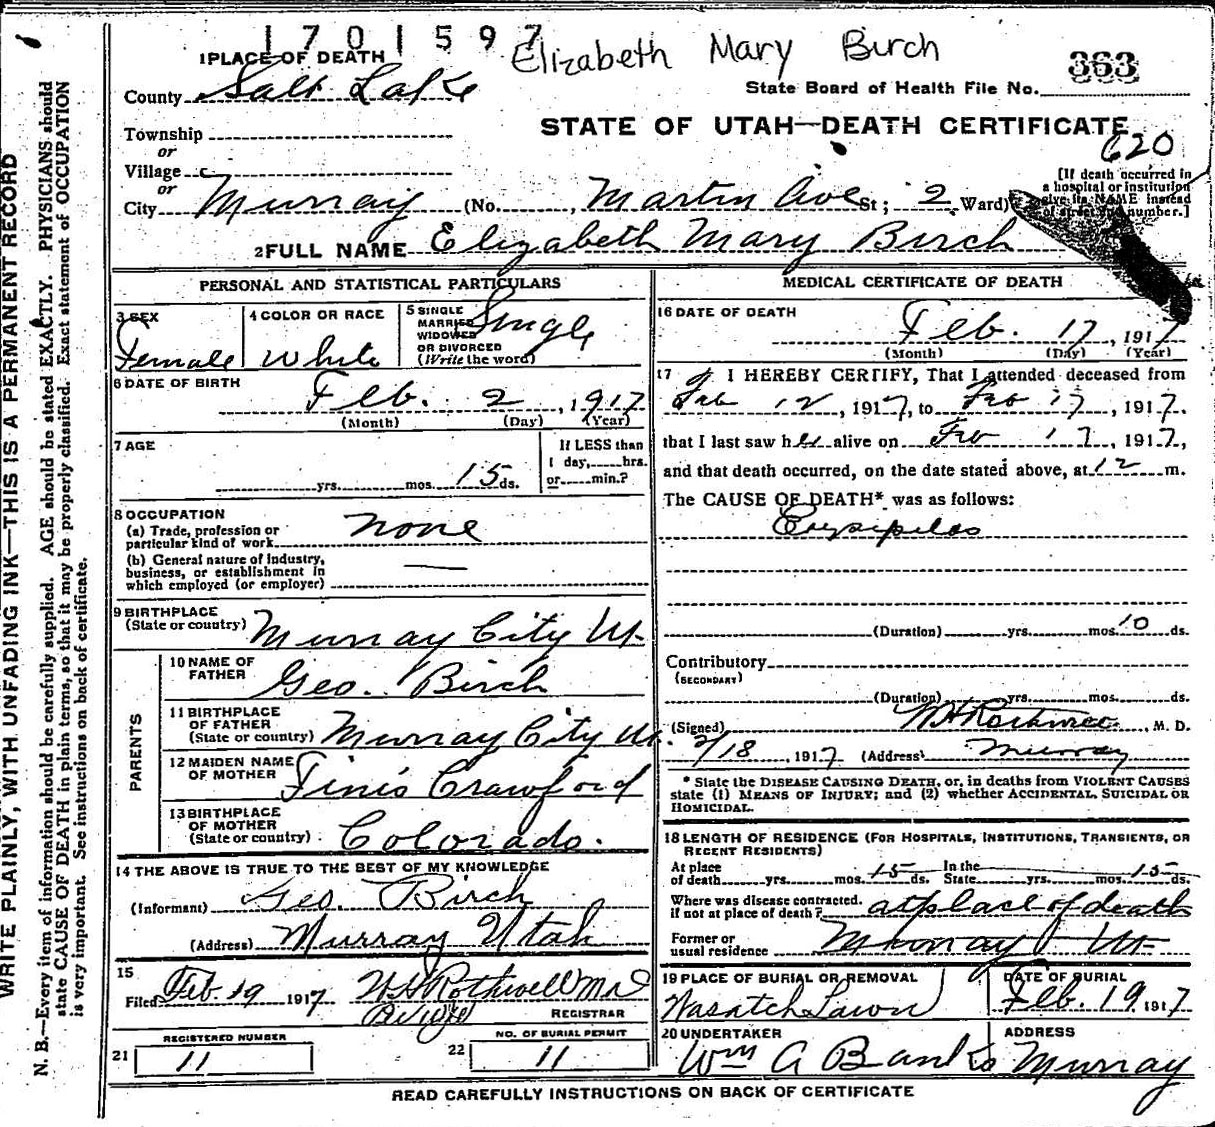 1701597
Elizabeth Mary Birch
363
State Board of Health File No.
1 PLACE OF DEATH
County Salt Lake
STATE OF UTAH—DEATH CERTIFICATE
620
Township
or
Village
or
City Murray (No. , Martin Ave St; 2 Ward)
[If death occurred in
a hospital or institution
give its NAME instead
of street and number.]
2 FULL NAME Elizabeth Mary Birch
PERSONAL AND STATISTICAL PARTICULARS
3 SEX
Female
4 COLOR OR RACE
White
5 SINGLE
MARRIED
WIDOWED
OR DIVORCED
(Write the word)
Single
6 DATE OF BIRTH
Feb. 2, 1917
(Month) (Day) (Year)
7 AGE
yrs. mos. 15 ds.
If LESS than
1 day, hrs.
or min.?
8 OCCUPATION
(a) Trade, profession or
particular kind of work none
(b) General nature of industry,
business, or establishment in
which employed (or employer)
9 BIRTHPLACE
(State or country) Murray City Ut.
PARENTS
10 NAME OF
FATHER Geo. Birch
11 BIRTHPLACE
OF FATHER
(State or country) Murray City Ut.
12 MAIDEN NAME
OF MOTHER Finis Crawford
13 BIRTHPLACE
OF MOTHER
(State or country) Colorado.
14 THE ABOVE IS TRUE TO THE BEST OF MY KNOWLEDGE
(Informant) Geo. Birch
(Address) Murray Utah
15
Filed Feb. 19 1917 W H Rothwell M D
REGISTRAR
REGISTERED NUMBER
21 11
NO. OF BURIAL PERMIT
22 11
MEDICAL CERTIFICATE OF DEATH
16 DATE OF DEATH
Feb. 17, 1917
(Month) (Day) (Year)
17 I HEREBY CERTIFY, That I attended deceased from
Feb 12, 1917, to Feb 17, 1917.
that I last saw her alive on Feb 17, 1917,
and that death occurred, on the date stated above, at 12 m.
The CAUSE OF DEATH* was as follows:
Erysipelas
(Duration) yrs. mos. 10 ds.
Contributory
(SECONDARY)
(Duration) yrs. mos. ds.
(Signed) W H Rothwell, M. D.
2/18, 1917 (Address) Murray
* State the DISEASE CAUSING DEATH, or, in deaths from VIOLENT CAUSES
state (1) MEANS OF INJURY; and (2) whether ACCIDENTAL, SUICIDAL OR
HOMICIDAL.
18 LENGTH OF RESIDENCE (FOR HOSPITALS, INSTITUTIONS, TRANSIENTS, OR
RECENT RESIDENTS)
At place
of death yrs. mos. 15 ds. In the
State yrs. mos. 15 ds.
Where was disease contracted.
if not at place of death? at place of death
Former or
usual residence Murray Ut
19 PLACE OF BURIAL OR REMOVAL
Wasatch Lawn
DATE OF BURIAL
Feb. 19 1917
20 UNDERTAKER
Wm A Banks
ADDRESS
Murray
READ CAREFULLY INSTRUCTIONS ON BACK OF CERTIFICATE
WRITE PLAINLY, WITH UNFADING INK—THIS IS A PERMANENT RECORD
N. B.—Every item of information should be carefully supplied. AGE should be stated EXACTLY. PHYSICIANS should
state CAUSE OF DEATH in plain terms, so that it may be properly classified. Exact statement of OCCUPATION
is very important. See instructions on back of certificate.